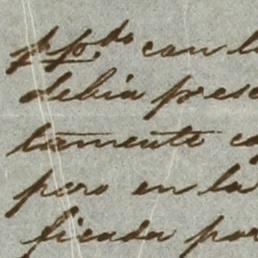 p. pdo. con l
debia prese
tamente co
pero en la
ficada por